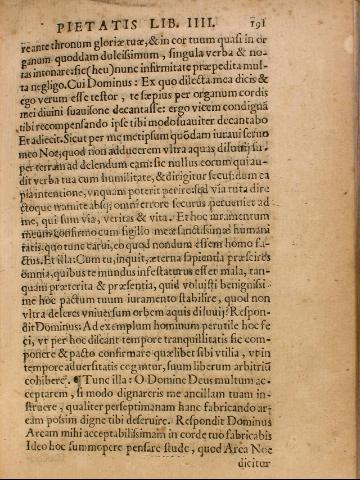 PIETATIS LIB. IIII. 191
re ante thronum gloriæ tuæ, & in cor tuum quasi in or
ganum quoddam dulcissimum, singula verba & no-
tas intonares: sic (heu) nunc infirmitate præpedita mul-
ta negligo. Cui Dominus: Ex quo dilecta mea dicis &
ego verum esse testor, te sæpius per organum cordis
mei diuini suauisone decantasse: ergo vicem condignã
tibi recompensando ipse tibi modo suauiter decantabo
Et adiecit. Sicut per me metipsum quõdam iuraui seruo
meo Noe, quod non adducerem vltra aquas diluuij su-
per terram ad delendum eam: sic nullus eorum qui au-
dit verba tua cum humilitate, & dirigitur secũdum ea
pia intentione, vnquam poterit perire: sed via tuta dire
ctoque tramite absq; omni errore securus perueniet ad
me, qui sum via, veritas & vita. Et hoc iuramentum
meum confirmo cum sigillo meæ sanctissimæ humani
tatis: quo tunc carui, eo quod nondum essem homo fa-
ctus. Et illa: Cum tu, inquit, æterna sapientia præscires
omnia, quibus te mundus infestaturus esset mala, tan-
quam præterita & præsentia, quid voluisti benignissi-
me hoc pactum tuum iuramento stabilire, quod non
vltra deleres vniuersum orbem aquis diluuij? Respon-
dit Dominus: Ad exemplum hominum perutile hoc fe
ci, vt per hoc discant tempore tranquillitatis sic com-
ponere & pacto confirmare quælibet sibi vtilia, vt in
tempore aduersitatis cogantur, suum liberum arbitriũ
cohibere. ¶ Tunc illa: O Domine Deus multum ac-
ceptarem, si modo dignareris me ancillam tuam in-
struere, qualiter per septimanam hanc fabricando ar-
cam possim digne tibi deseruire. Respondit Dominus
Arcam mihi acceptabilissimam in corde tuo fabricabis
Ideo hoc summopere pensare stude, quod Arca Noe
dicitur